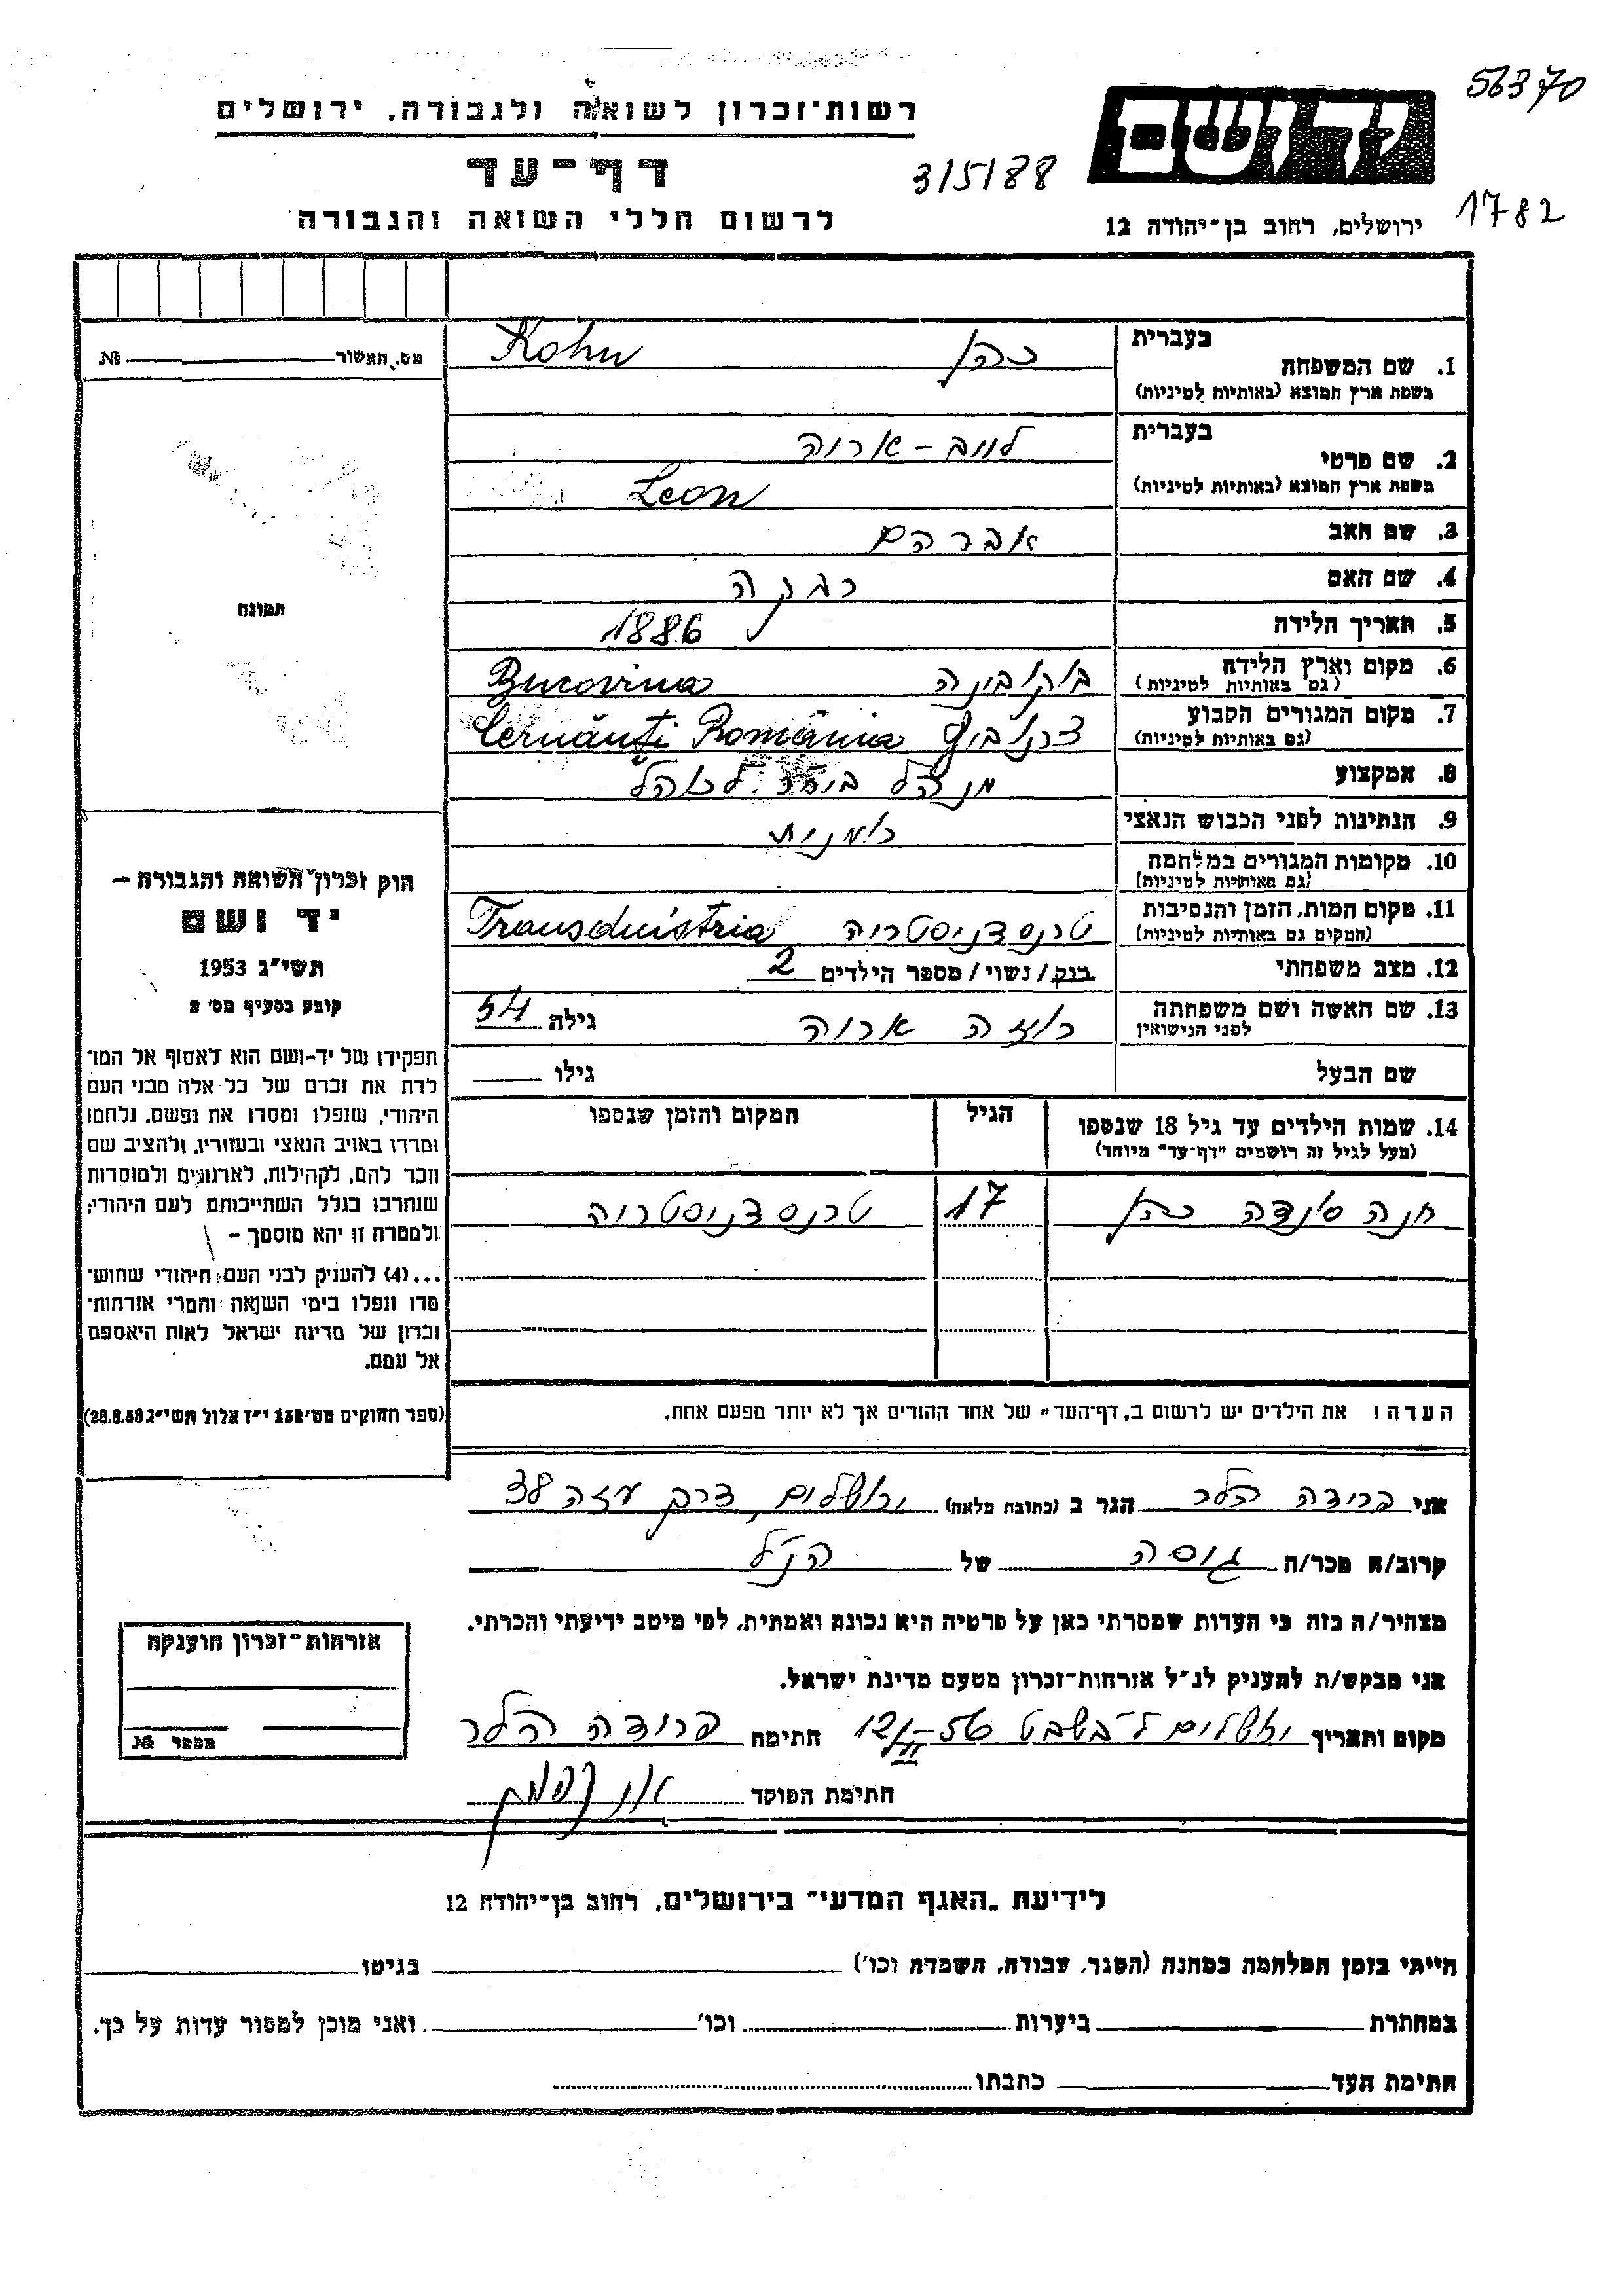 56370
רשות־זכרון לשואה ולגבורה, ירושלים
ידושם
דף־עד
315188
לרשום חללי השואה והגבורה
ירושלים, רחוב בן־יהודה 12
1782
בעברית
1. שם המשפחה
כהן
Kohn
(בשפת ארץ המוצא (באותיות לטיניות
בעברית
2. שם פרטי
לייב - אריה
Leon
בשפת ארץ המוצא (באותיות לטיניות)
3. שם האב
אברהם
4. שם האם
רבקה
5. תאריך הלידה
1886
6. מקום וארץ הלידה
(גם באותיות לטיניות)
בוקובינה Bucovina
7. מקום המגורים הקבוע
(גם באותיות לטיניות)
צרנוביץ Cernăuți România
8. המקצוע
מנהל
9. הנתינות לפני הכבוש הנאצי
רומנית
10. מקומות המגורים במלחמה
(גם באותיות לטיניות)
11. מקום המות, הזמן והנסיבות
(המקום גם באותיות לטיניות)
טרנסדניסטריה Transdnistria
12. מצב משפחתי
רוק/נשוי/ מספר הילדים 2
13. שם האשה ושם משפחתה
לפני הנישואין
רוזה אריה
גילה 54
שם הבעל
גילו
14. שמות הילדים עד גיל 18 שנספו
(מעל לגיל זה רושמים "דף־עד" מיוחד)
הגיל
המקום והזמן שנספו
חנה סינדה כהן
17
טרנסדניסטריה
הערה: את הילדים יש לרשום ב„דף־העד" של אחד ההורים אך לא יותר מפעם אחת.
מס. האשור №
תמונה
חוק זכרון השואה והגבורה —
יד ושם
תשי"ג 1953
קובע בסעיף מס' 2
תפקידו של יד-ושם הוא לאסוף אל המו־
לדת את זכרם של כל אלה מבני העם
היהודי, שנפלו ומסרו את נפשם, נלחמו
ומרדו באויב הנאצי ובעוזריו, ולהציב שם
וזכר להם, לקהילות, לארגונים ולמוסדות
שנחרבו בגלל השתייכותם לעם היהודי;
ולמטרה זו יהא מוסמך —
...(4) להעניק לבני העם היהודי שהוש־
מדו ונפלו בימי השואה והמרי אזרחות־
זכרון של מדינת ישראל לאות היאספם
אל עמם.
(ספר החוקים מס' 132 י"ז אלול תשי"ג 28.8.53)
אני פרידה הלר הגר ב (כתובת מלאה) ירושלים, דרך עזה 38
קרוב/ה מכר/ה גיסה של הנ"ל
מצהיר/ה בזה כי העדות שמסרתי כאן על פרטיה היא נכונה ואמתית, לפי מיטב ידיעתי והכרתי.
אני מבקש/ת להעניק לנ"ל אזרחות־זכרון מטעם מדינת ישראל.
מקום ותאריך ירושלים ל' בשבט 12/II-56 חתימה פרידה הלר
חתימת הפוקד
אזרחות־זכרון הוענקה
מספר №
לידיעת „האגף המדעי" בירושלים, רחוב בן־יהודה 12
הייתי בזמן המלחמה במחנה (הסגר, עבודה, השמדה וכו') בגיטו
במחתרת ביערות וכו' ואני מוכן למסור עדות על כך.
חתימת העד כתבתו